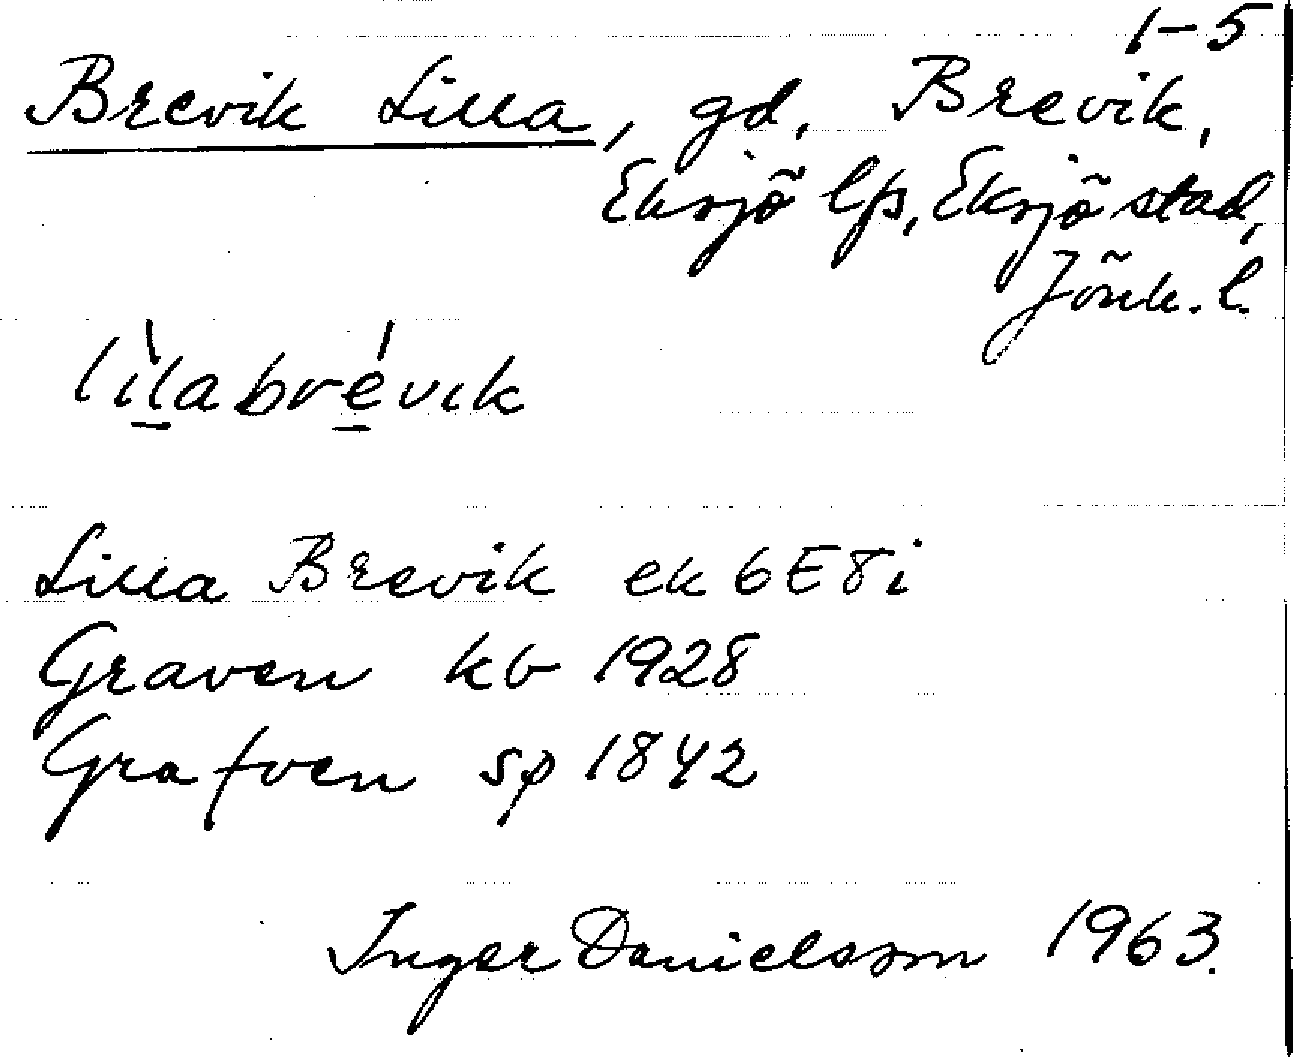 1-5
Brevik Lilla, gd, Brevik,
Eksjö lfs, Eksjö stad,
Jönk. l.
lìlabrévik
Lilla Brevik ek 6E8i
Graven kb 1928
Grafven sp 1842
Inger Danielsson 1963.